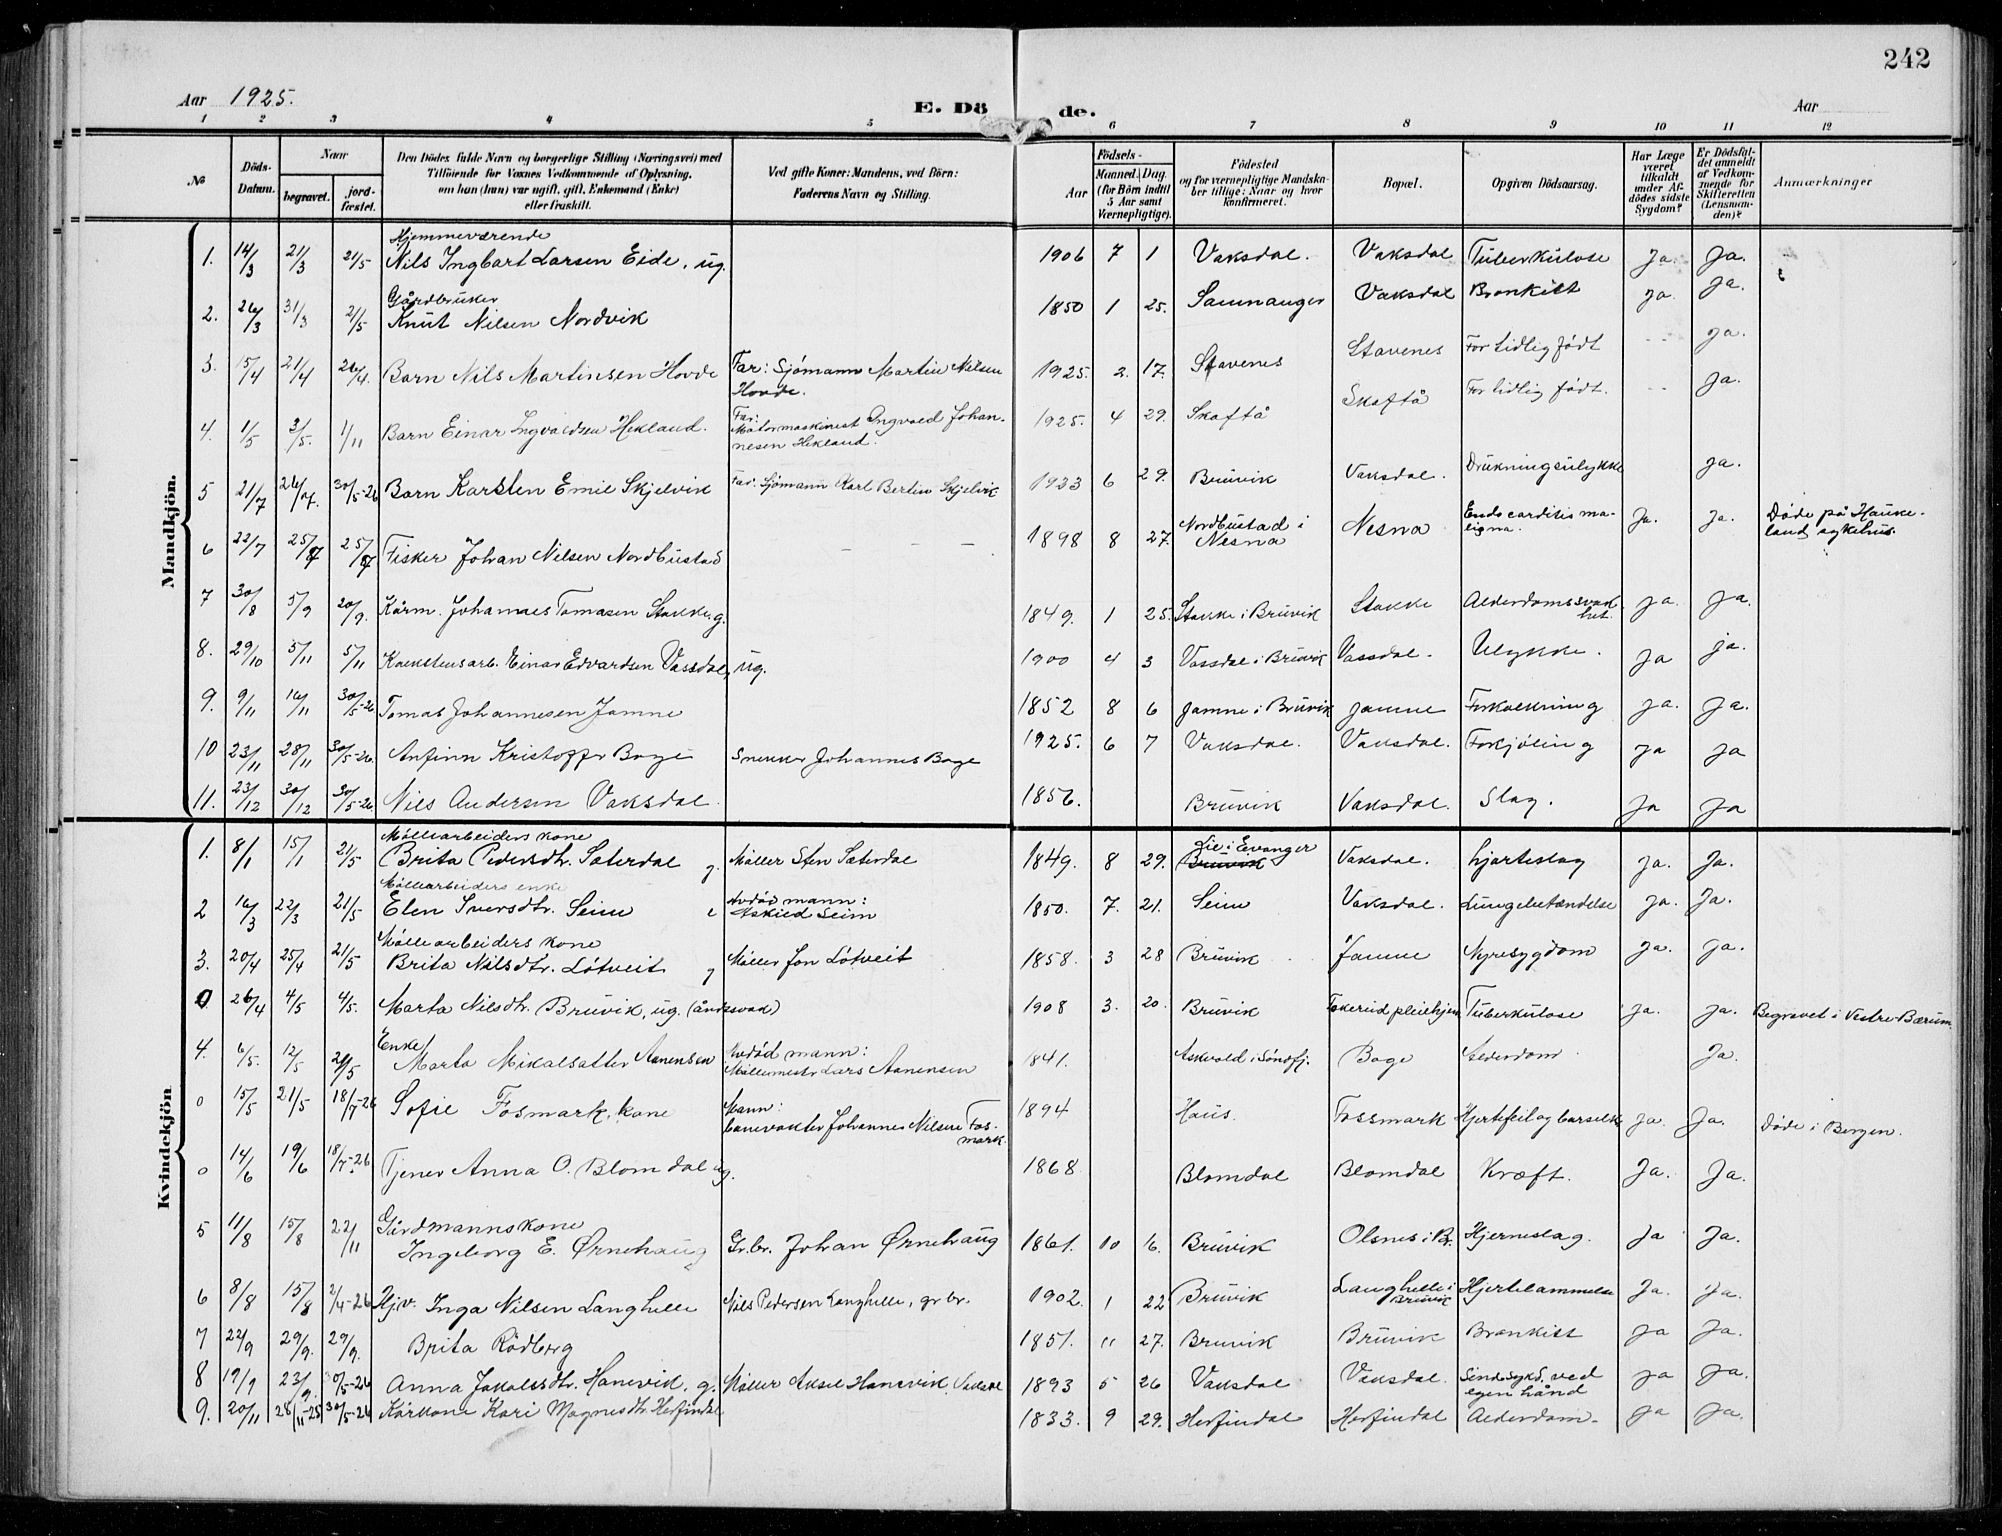 242
Aar 1925.
E. Dö
de.
Aar
1 2 3 4 5 6 7 8 9 10 11 12
№
Döds-Datum.
Naar
begravet.
jord-fæstet.
Den Dödes fulde Navn og borgerlige Stilling (Næringsvei) med
Tilföiende for Voxnes Vedkommende af Oplysning,
om han (hun) var ugift, gift, Enkemand (Enke)
eller fraskilt.
Ved gifte Koner: Mandens, ved Börn:
Faderens Navn og Stilling.
Födsels-
Aar
Maaned. Dag.
(for Börn indtil
5 Aar samt
Værnepligtige).
Födested
og for værnepligtige Mandska-
ber tillige: Naar og hvor
konfirmeret.
Bopæl.
Opgiven Dödsaarsag.
Har Læge
været
tilkaldt
under Af-
dödes sidste
Sygdom?
Er Dödsfal-
det anmeldt
af Vedkom-
mende for
Skifteretten
(Lensman-
den)?
Anmærkninger
Mandkjön.
Hjemmeværende
1. 14/3 21/3 21/5 Nils Ingbart Larsen Eide, ug. 1906 7 1 Vaksdal. Vaksdal Tuberkulose Ja. Ja.
Gårdbruker
2. 26/3 31/3 2/5 Knut Nilsen Nordvik 1850 1 25. Samnanger Vaksdal Bronkitt Ja. Ja.
3. 15/4 21/4 26/4. Barn Nils Martinsen Hovde Far: Sjömann Martin Nilsen
Hovde. 1925. 2. 17. Stavenes Stavenes For tidlig födt -- Ja.
4. 1/5 2/5. 1/11 Barn Einar Ingvaldsen Hekland. Far:
Motormaskinist Ingvald Johan-
nesen Hekland. 1925. 4 29. Skaftå Skaftå For tidlig födt. -- Ja.
5 21/7 26/7. 30/5-26 Barn Karsten Emil Skjelvik Far: Sjömann Karl Bertin Skjelvik 1923 6 29. Bruvik Vaksdal. Drukningsulykke Ja.
6 22/7 25/7 25/7 Fisker Johan Nilsen Nordbustad — — — 1898 8 27. Nordbustad i
Nesna Nesna Endocarditis ma-
ligna. Ja. Ja. Döde på Hauke-
land sykehus.
7 30/8 5/9 20/9. Kårm. Johannes Tomasen Stakke, g. 1849. 1 25. Stakke i Bruvik Stakke Alderdomssvak
het. Ja. Ja.
8. 29/10 5/11 5/11 Einar Edvardsen Vassdal, ug. 1900 4 3 Vassdal i Bruvik Vassdal. Ulykke. Ja ja.
9. 9/11 16/11 30/5-26 Tomas Johannesen Jamne 1852 8 6 Jamne i Bruvik Jamne Forkalkning Ja. Ja.
10 23/11 28/11 30/5-26. Anfinn Kristoffer Boge Snekker Johannes Boge 1925. 6 7 Vaksdal. Vaksdal. Forkjöling Ja Ja
11. 23/12 30/12 30/5-26 Nils Andersen Vaksdal. 1856. Bruvik Vaksdal. Slag. Ja Ja
Kvindekjön
Möllearbeiders kone
1. 8/1 15/1 21/5 Brita Pedersdtr. Sæterdal g. Möller Sten Sæterdal 1849. 8 29. Lie i Evanger
Bruvik Vaksdal. hjerteslag Ja. Ja.
Möllearbeiders enke
2 16/3 22/3 21/5 Elen Iversdtr. Seim e Avdöd mann:
Askild Seim 1850. 7. 21. Seim Vaksdal. Lungebetændelse Ja. Ja.
Möllearbeiders kone
3. 20/4 25/4 21/5 Brita Nilsdtr. Lötveit g Möller Jon Lötveit 1858. 3 28 Bruvik Jamne Nyresygdom Ja. Ja.
0 26/4 4/5 4/5. Marta Nilsdtr. Bruvik, ug. (åndssvak) 1908 3. 20. Bruvik Tokerud pleiehjem Tuberkulose Ja. Ja. Begravet i Vestre Bærum
Enke
4. 6/5. 12/5 21/5 Marta Mikalsatter Aanensen Avdöd mann:
Möllemestr Lars Aanensen 1841. Askvold i Söndfj. Boge Alderdom Ja.
0 15/5 21/5 18/7-26 Sofie Fosmark, kone Mann:
banevakter Johannes Nilsen Fos-
mark. 1894 Haus. Fossmark Hjertefeil og barselsk. Ja. Ja. Döde i Bergen.
0 14/6 19/6 18/7-26 Tjener Anna O. Blomdal ug. 1868 Blomdal Blomdal Kræft. Ja. Ja.
Gårdmannskone
5 11/8 15/8 22/11 Ingeborg E. Ørnehaug Gr.br. Johan Ørnehaug 1861. 10 16. Bruvik Olsnes i Br. Hjerneslag. Ja Ja.
6 8/8 15/8 2/4-26 Hjv. Inga Nilsen Langhelle Nils Pedersen Langhelle, gr.br. 1902. 1 22 Bruvik Langhelle i
Bruvik Hjertelammelse Ja. Ja.
7 22/9 29/9. 29/9. Brita Rödberg 1851. 11 27. Bruvik Bruvik Bronkitt Ja Ja.
8 19/9 23/9. 30/5-26 Anna Jakobsdtr. Hanevik, g. Möller Aksel Hanevik, Vaksdal 1893 5 26 Vaksdal Vaksdal. Sindssykd. ved
egen hånd Ja Ja.
9. 20/11 28/11-25 30/5-26 Kårkone Kari Magnesdtr. Herfindal 1833. 9 29. Herfindal Herfindal Alderdom. Ja Ja.